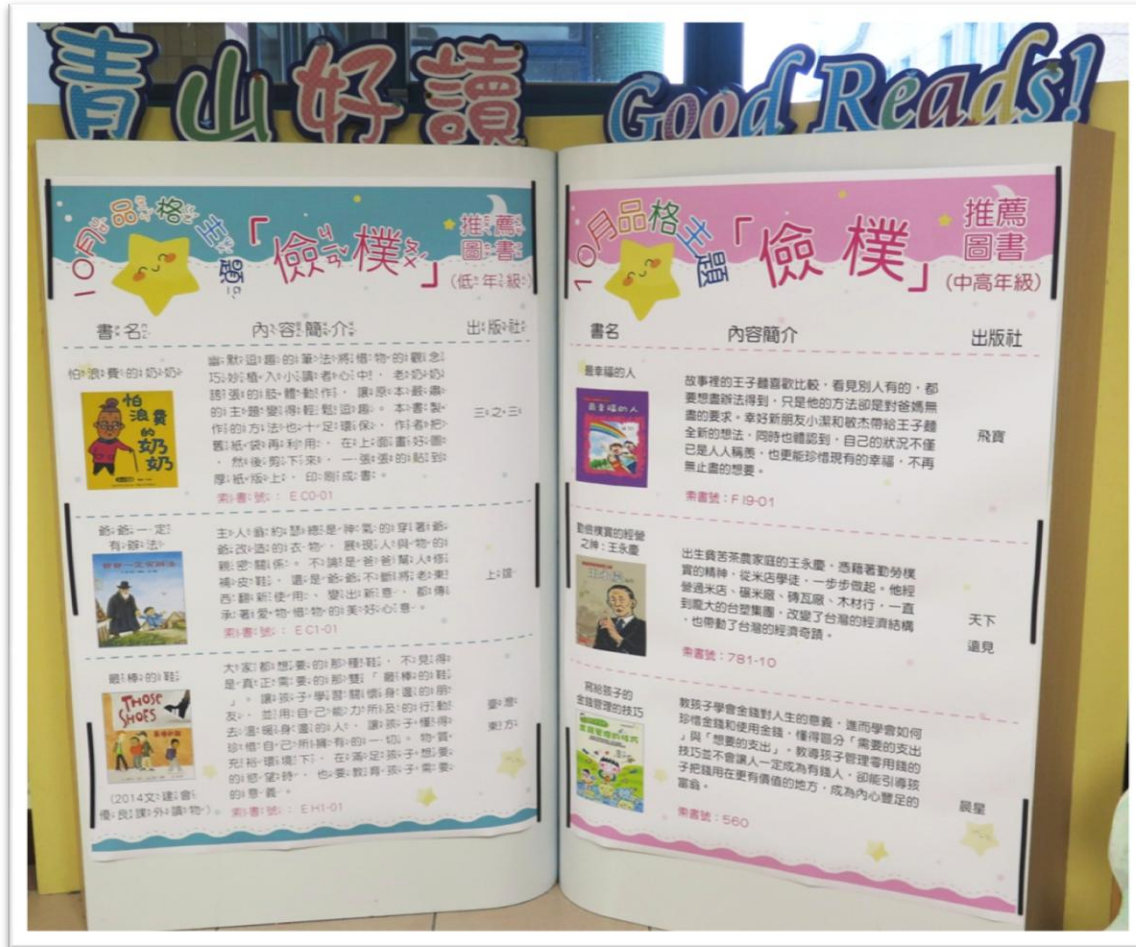 青山好讀
Good Reads!
10月品格主題
「儉樸」
推薦
圖書
(低年級)
書名 內容簡介 出版社
怕浪費的奶奶
怕
浪費
的
奶奶
幽默逗趣的筆法將惜物的觀念
巧妙植入小讀者心中，老奶奶
誇張的肢體動作，讓原本嚴肅
的主題變得輕鬆逗趣。本書製
作的方法也十足環保，作者把
舊紙袋再利用，在上面畫好圖
，然後剪下來，一張張的貼到
厚紙版上，印刷成書。
索書號：EC0-01
三之三
爺爺一定
有辦法
爺爺一定有辦法
主人翁約瑟總是神氣的穿著爺
爺改造的衣物，展現人與物的
親密關係。不論是爸爸幫人修
補皮鞋，還是爺爺不斷將老東
西翻新使用、變出新意，都傳
承著愛物惜物的美好心意。
索書號：EC1-01
上誼
最棒的鞋
THOSE
SHOES
(2014文建會
優良課外讀物)
大家都想要的那種鞋，不見得
是真正需要的那雙「最棒的鞋
」。讓孩子學習關懷身邊的朋
友，並用自己能力所及的行動
去溫暖身邊的人，讓孩子懂得
珍惜自己所擁有的一切。物質
充裕環境下，在滿足孩子想要
的慾望時，也要教育孩子需要
的意義。
索書號：EH1-01
臺灣
東方
10月品格主題
「儉樸」
推薦
圖書
(中高年級)
書名 內容簡介 出版社
最幸福的人
最幸福的人
故事裡的王子麵喜歡比較，看見別人有的，都
要想盡辦法得到，只是他的方法卻是對爸媽無
盡的要求。幸好新朋友小潔和敏杰帶給王子麵
全新的想法，同時也體認到，自己的狀況不僅
已是人人稱羨，也更能珍惜現有的幸福，不再
無止盡的想要。
索書號：F19-01
飛寶
勤儉樸實的經營
之神：王永慶
出生貧苦茶農家庭的王永慶，憑藉著勤勞樸
實的精神，從米店學徒，一步步做起。他經
營過米店、碾米廠、磚瓦廠、木材行，一直
到龐大的台塑集團，改變了台灣的經濟結構
，也帶動了台灣的經濟奇蹟。
索書號：781-10
天下
遠見
寫給孩子的
金錢管理的技巧
金錢管理的技巧
教孩子學會金錢對人生的意義，進而學會如何
珍惜金錢和使用金錢，懂得區分「需要的支出
」與「想要的支出」。教導孩子管理零用錢的
技巧並不會讓人一定成為有錢人，卻能引導孩
子把錢用在更有價值的地方，成為內心豐足的
富翁。
索書號：560
晨星